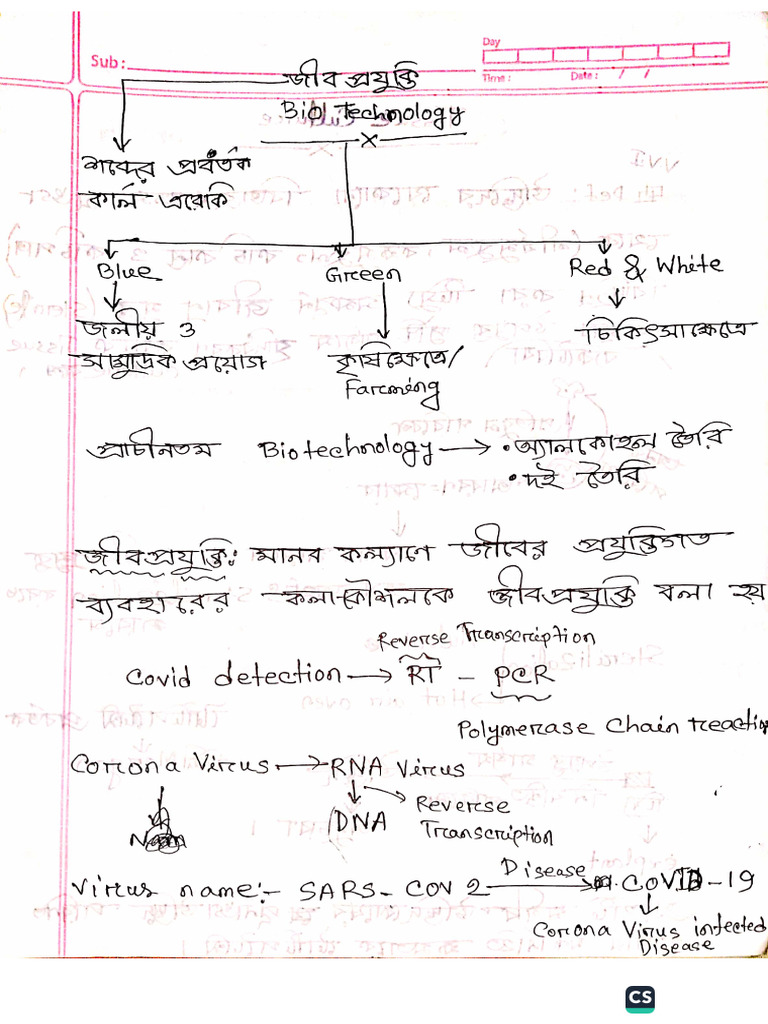 Day
Sub :
Time :
Date : / /
জীব প্রযুক্তি
Biotechnology
X
শব্দের প্রবর্তক
কার্ল এরেকি
Blue
Green
Red & White
জলীয় ও
সামুদ্রিক প্রয়োগ
কৃষিক্ষেত্রে/
Farming
চিকিৎসাক্ষেত্রে
প্রাচীনতম Biotechnology → • অ্যালকোহল তৈরি
• দই তৈরি
জীবপ্রযুক্তি: মানব কল্যাণে জীবের প্রযুক্তিগত
ব্যবহারের কলাকৌশলকে জীবপ্রযুক্তি বলা হয়
Reverse Transcription
Covid detection → RT - PCR
Polymerase Chain reaction
Corona Virus → RNA Virus
DNA
Reverse
Transcription
Disease
Virus name:- SARS-COV 2 → COVID-19
Corona Virus infected
Disease
CS